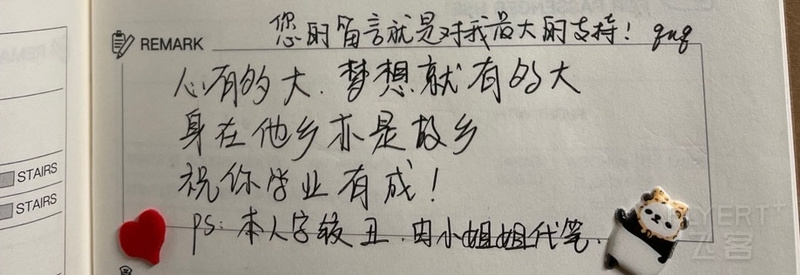 您的留言就是对我最大的支持! qwq
REMARK
心有的大.梦想就有的大
身在他乡亦是故乡
祝你学业有成!
STAIRS
STAIRS
PS: 本人字较丑.由小姐姐代笔.
FLYERT+
飞客